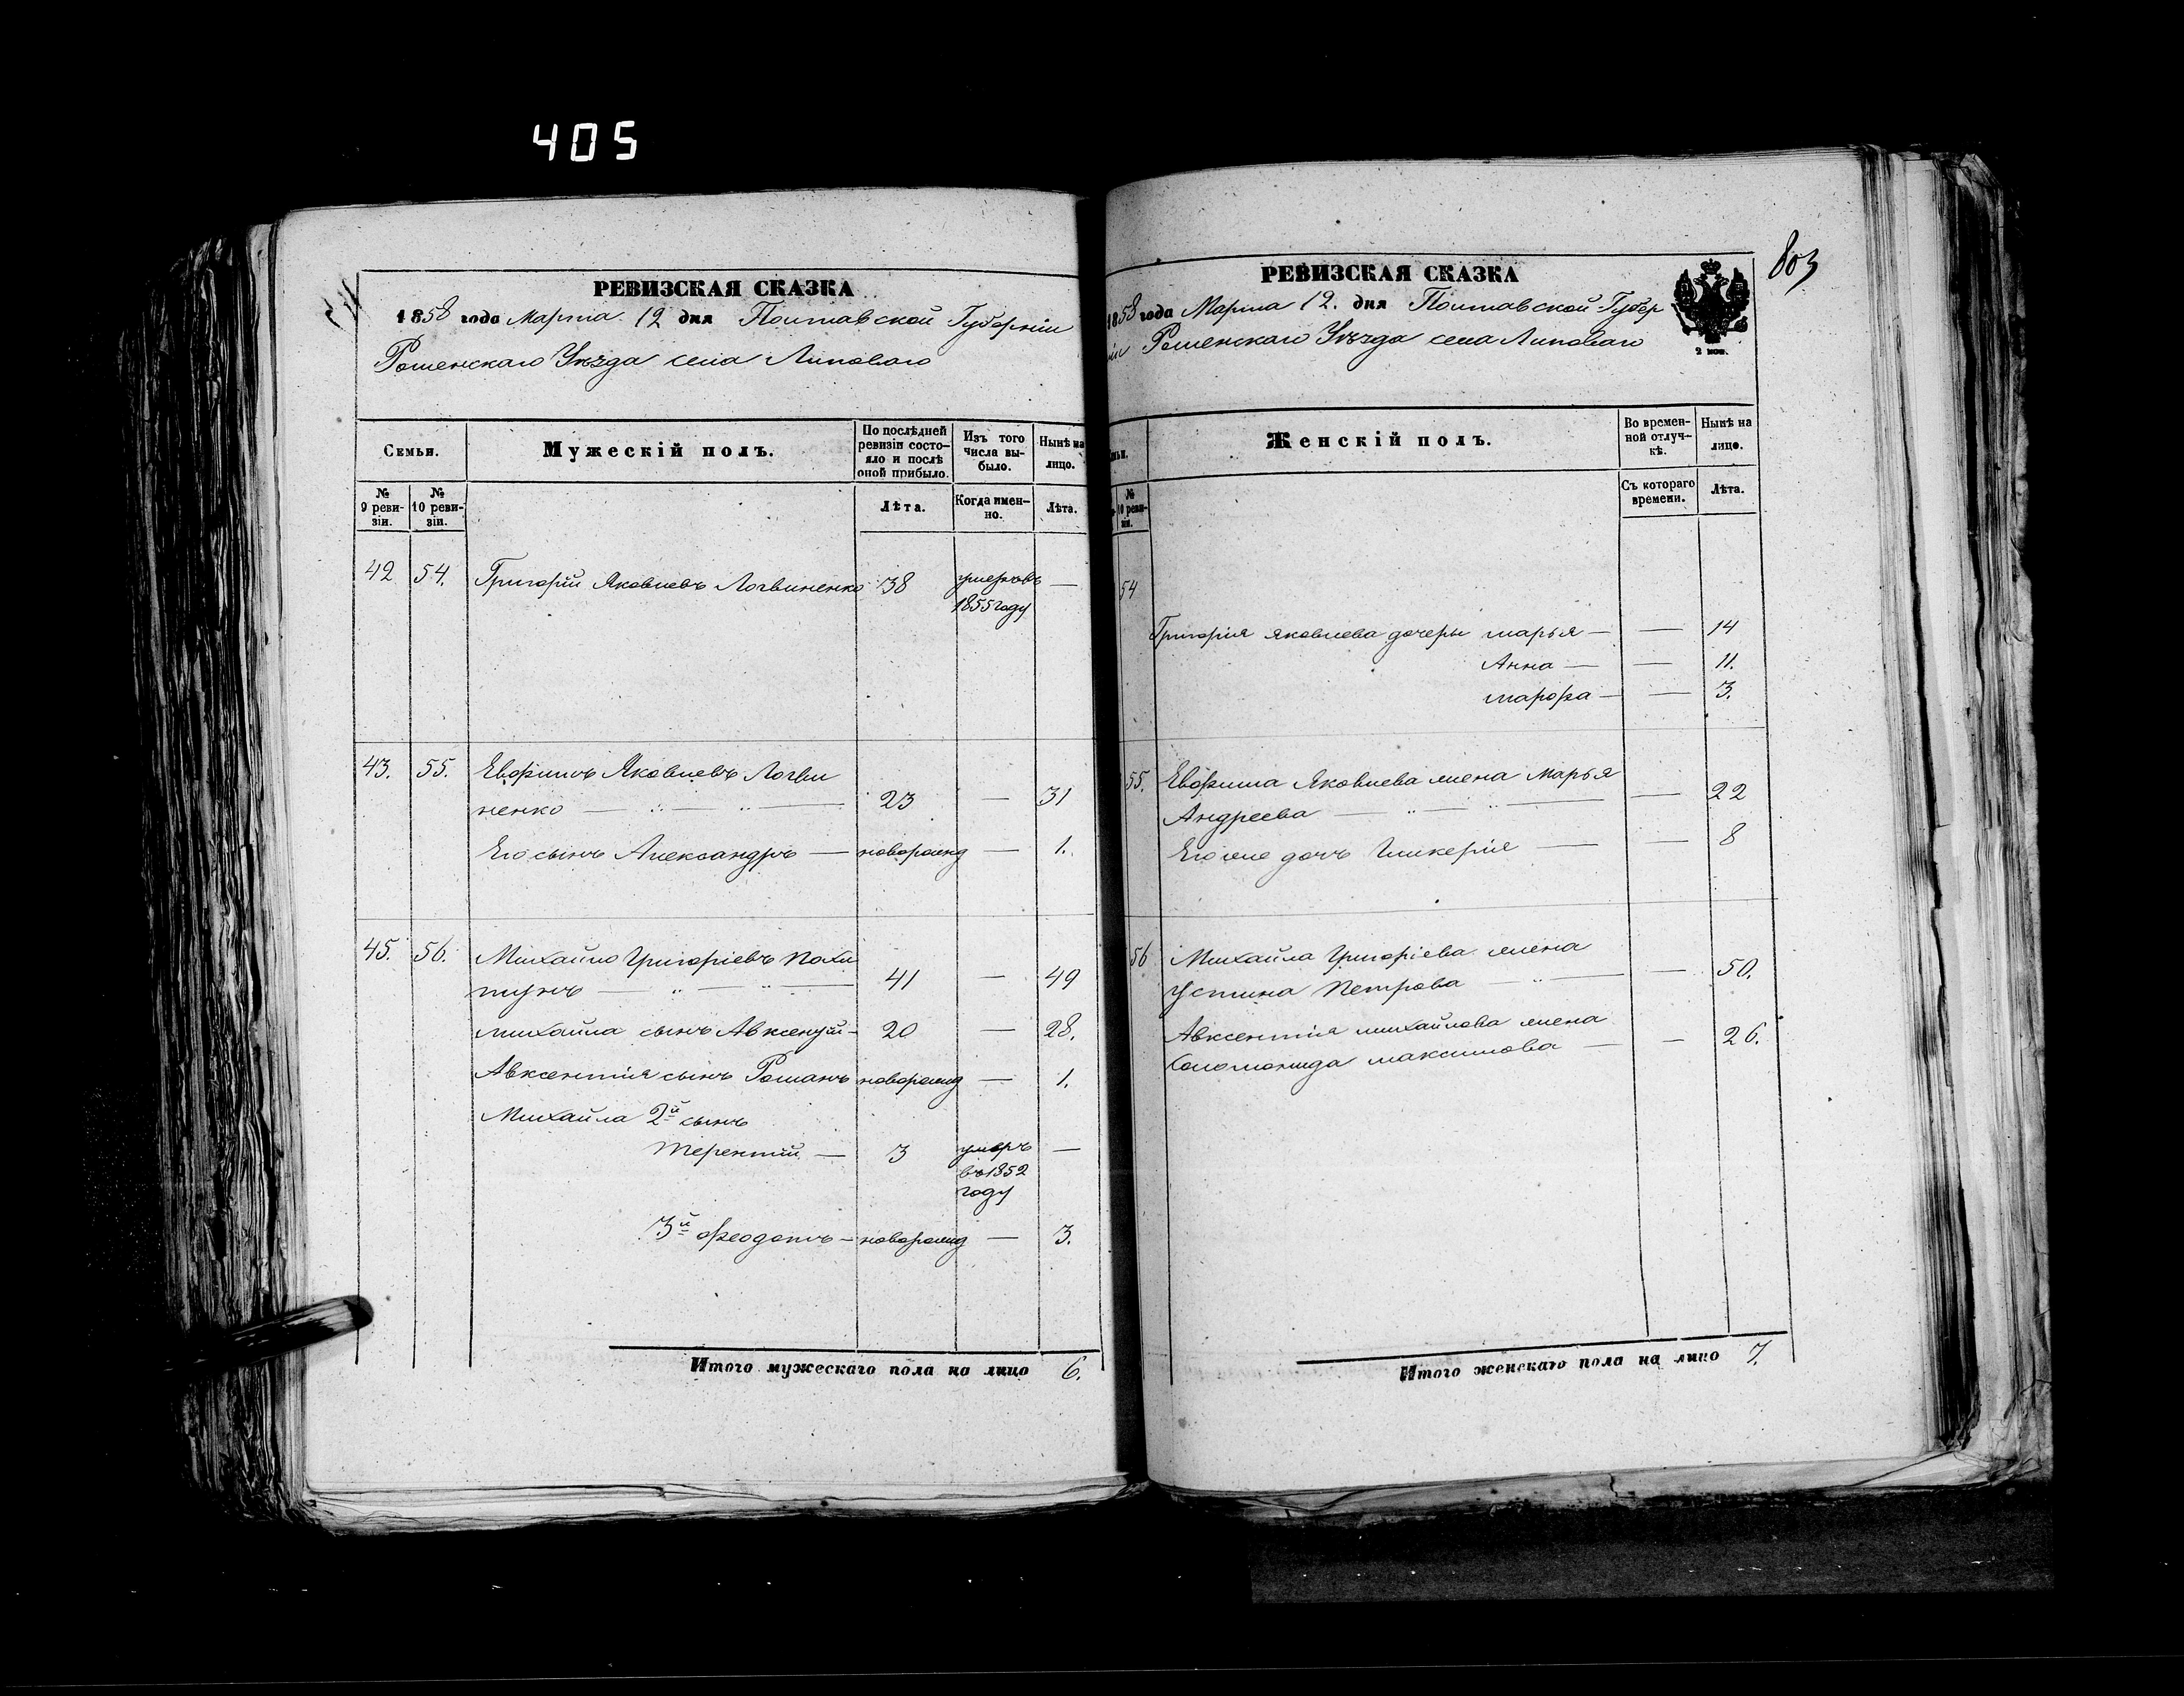 405
РЕВИЗСКАЯ СКАЗКА
1858 года Марта 12 дня Полтавской Губерніи
Роменскаго Уѣзда села Липоваго
Семьи.
Мужескій полъ.
По послѣдней ревизіи состо-
яло и послѣ
оной прибыло.
Изъ того
числа вы-
было.
Нынѣ на
лицо.
№
9 реви-
зіи.
№
10 реви-
зіи.
Лѣта.
Когда имен-
но.
Лѣта.
42 54. Григорій Яковлевъ Логвиненко 38 умеръ въ —
1855 году
43. 55. Евфимъ Яковлевъ Логви
ненко — 23 — 31
Его сынъ Александръ — новорожд — 1.
45. 56. Михайло Григоріевъ Похи
тунъ — 41 — 49
михайла сынъ Авксентій - 20 — 28.
Авксентія сынъ Романъ новорожд — 1.
Михайла 2й сынъ
терентій — 3 умеръ —
въ 1852
году
3й Феодотъ — новорожд — 3.
Итого мужескаго пола на лицо 6.
803
РЕВИЗСКАЯ СКАЗКА
1858 года Марта 12. дня Полтавской Губер
ніи Роменскаго Уѣзда села Липоваго
2 коп.
Женскій полъ.
Во времен-
ной отлуч-
кѣ.
Нынѣ на
лицо.
№
10 реви-
зіи.
Съ котораго
времени.
Лѣта.
54
Григорія яковлева дочери марья — — 14
Анна — — 11.
марфа — — 3.
55. Евфима Яковлева жена Марья
Андреева — — 22
Его же дочь Гликерія — — 8
56 Михайла Григоріева жена
Устина Петрова — — 50.
Авксентія михайлова жена
Соломонида максимова — — 26.
Итого женскаго пола на лицо 7.